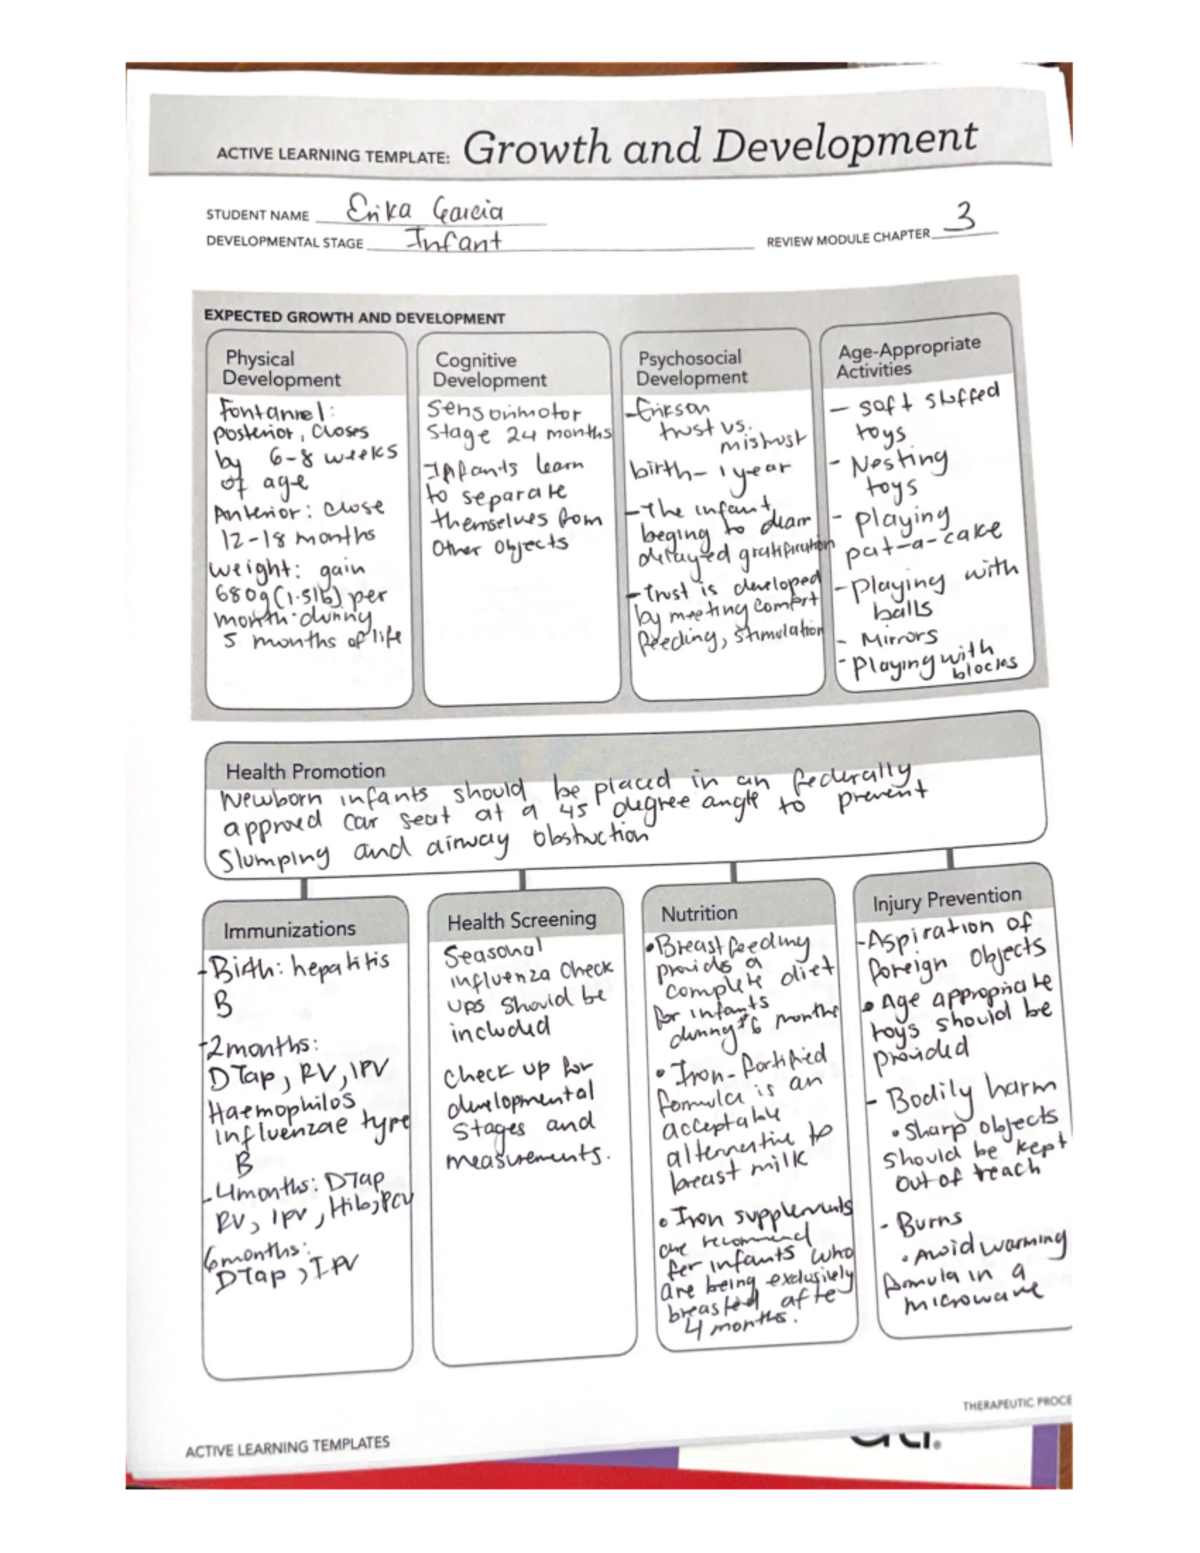 ACTIVE LEARNING TEMPLATE: Growth and Development
STUDENT NAME Erika Garcia
DEVELOPMENTAL STAGE Infant
REVIEW MODULE CHAPTER 3
EXPECTED GROWTH AND DEVELOPMENT
Physical
Development
Fontannel:
posterior, closes
by 6-8 weeks
of age
Anterior: close
12-18 months
weight: gain
680g (1.5lb) per
month during
5 months of life
Cognitive
Development
Sensorimotor
Stage 24 months
Infants learn
to separate
themselves from
other objects
Psychosocial
Development
-Erikson
trust vs.
mistrust
birth- 1 year
-The infant
beging to
delayed gratification
-trust is developed
by meeting comfort
feeding, stimulation
Age-Appropriate
Activities
- soft stuffed
toys
- Nesting
toys
- playing
pat-a-cake
-Playing with
balls
- Mirrors
-Playing with
blocks
Health Promotion
Newborn infants should be placed in an federally
approved car seat at a 45 degree angle to prevent
Slumping and airway obstruction
Immunizations
-Birth: hepatitis
B
-2months:
DTap, RV, IPV
Haemophilos
influenzae type
B
-4months: DTap
RV, IPV, Hib, PCV
6months:
DTap, IPV
Health Screening
Seasonal
influenza Check
ups should be
included
check up for
developmental
stages and
measurements.
Nutrition
•Breastfeeding
provids a
complete diet
for infants
during 6 months
• Iron-fortified
formula is an
acceptable
alternative to
breast milk
• Iron supplements
are recommend
for infants who
are being exclusively
breastfed after
4 months.
Injury Prevention
-Aspiration of
foreign objects
• Age appropriate
toys should be
provided
- Bodily harm
• Sharp objects
should be kept
out of reach
- Burns
• Avoid warming
formula in a
microwave
THERAPEUTIC PROCE
ACTIVE LEARNING TEMPLATES